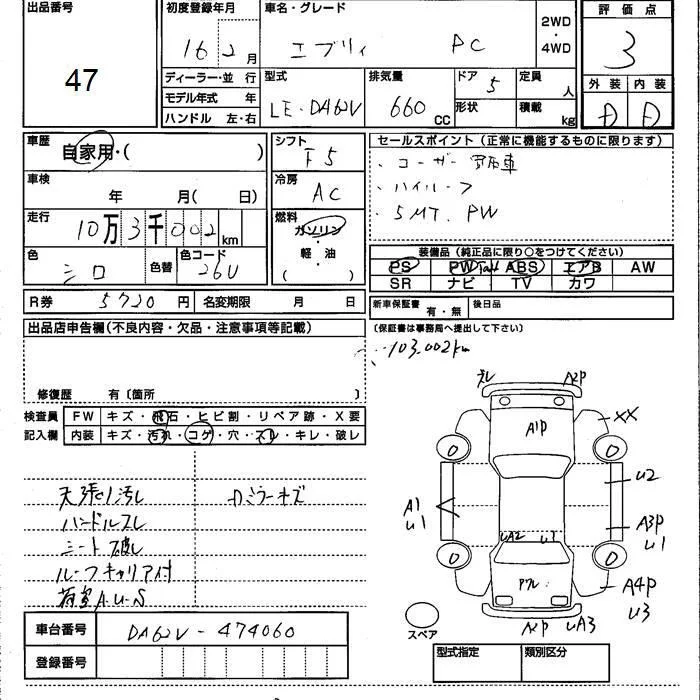 出品番号 初度登録年月 車名・グレード 2WD・4WD 評価点
47 16 2月 エブリィ PC 3
ディーラー・並行 型式 排気量 ドア 5 定員 人 外装 内装
モデル年式 年 LE-DA62V 660 CC 形状 積載 kg D D
ハンドル 左・右
車歴 自家用・( ) シフト F5 セールスポイント(正常に機能するものに限ります)
車検 年 月(日) 冷房 AC 、ユーザー買取車
、ハイルーフ
走行 10万3千002km 燃料 ガソリン・軽・油 ( ) 、5MT.PW
色 シロ 色替 色コード 26U 装備品(純正品に限り○をつけてください)
PS PW ABS エアB AW
SR ナビ TV カワ
R券 5720円 名変期限 月 日 新車保証書 有・無 後日品
出品店申告欄(不良内容・欠品・注意事項等記載) (保証書は事務局へ提出して下さい)
103.002km
修復歴 有〔箇所 〕
検査員 FW キズ・飛石・ヒビ割・リペア跡・X要
記入欄 内装 キズ・汚れ・コゲ・穴・スレ・キレ・破レ
天張り汚レ Dミラーキズ
ハンドルスレ
シート破レ
ルーフキャリア付
荷室A.U-S
A2P
A1P XX
U2
A1 U1 A3P U1
UA2 U1
A4P U3
A2P UA3
スペア
車台番号 DA62V-474060
登録番号
型式指定 類別区分